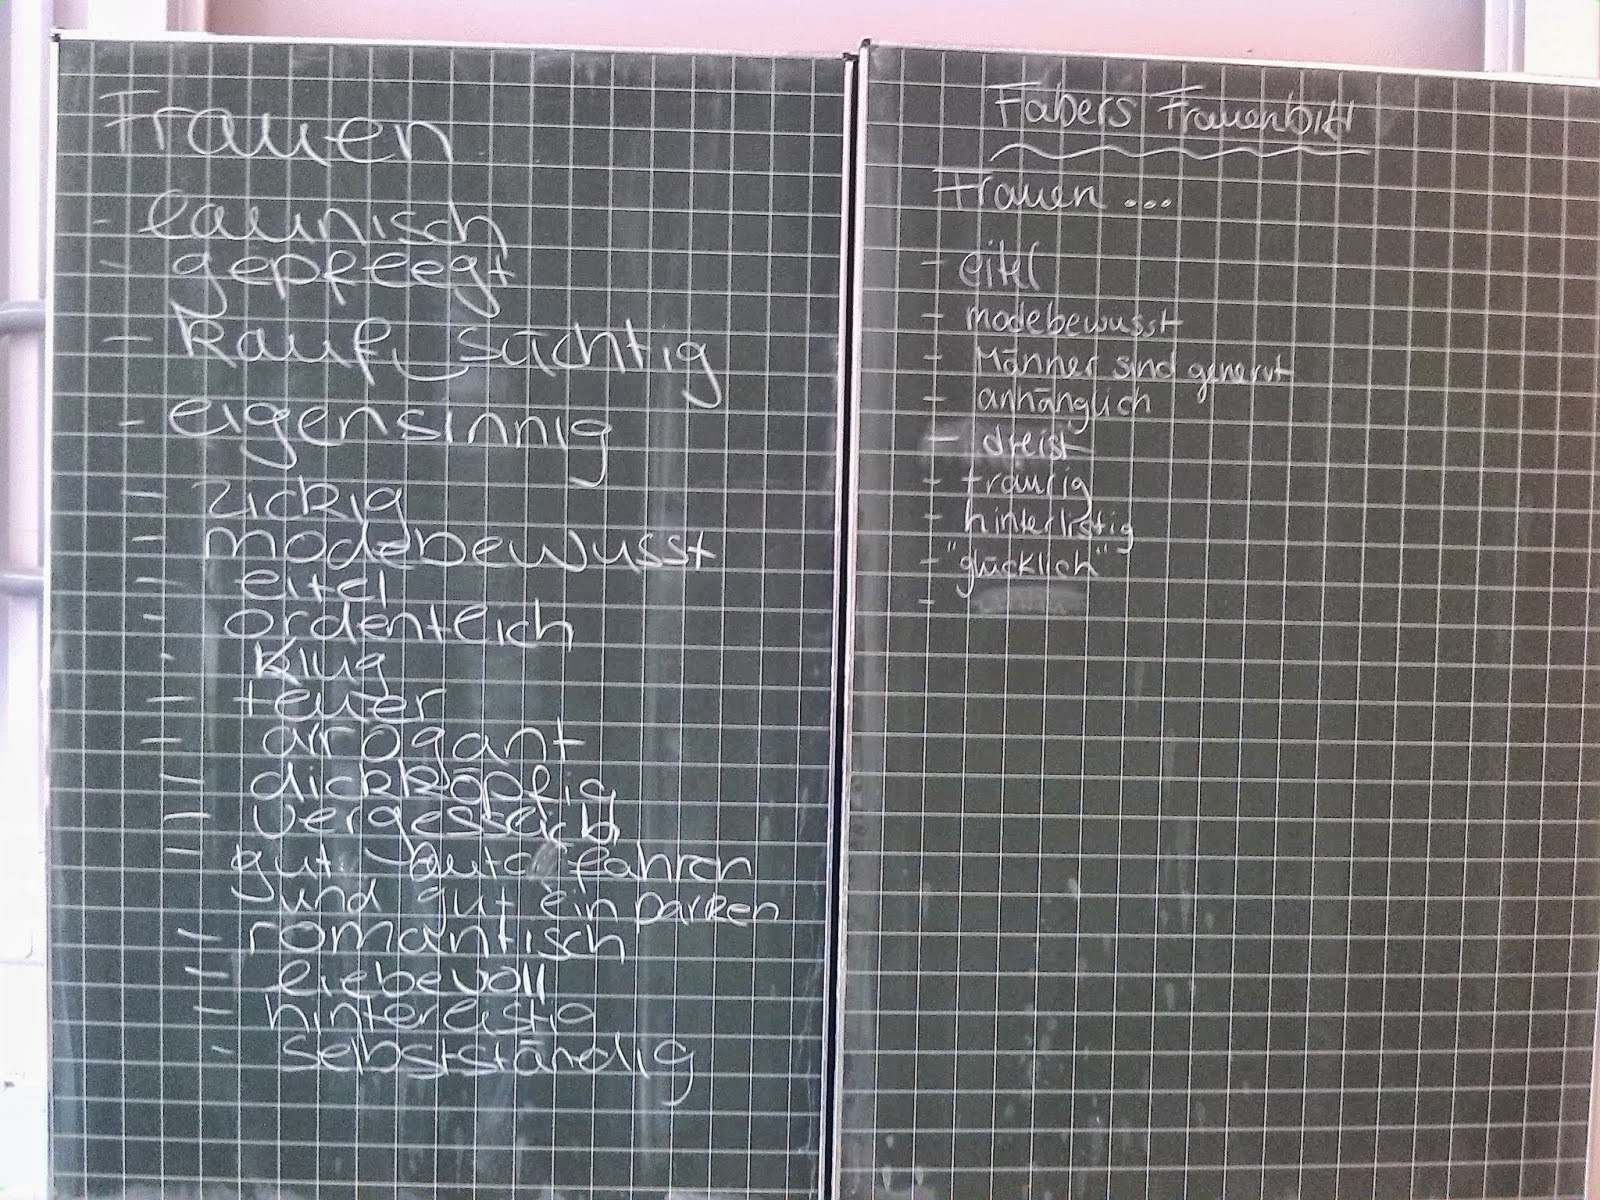 Frauen
- launisch
- gepflegt
- kaufsüchtig
- eigensinnig
- zickig
- modebewusst
- eitel
- ordentlich
- klug
- teuer
- arrogant
- dickköpfig
- vergesslich
- gut Auto fahren
und gut einparken
- romantisch
- liebevoll
- hinterlistig
- selbstständig
Fabers Frauenbild
Frauen ...
- eitel
- modebewusst
- Männer sind genervt
- anhänglich
- dreist
- traurig
- hinterlistig
- "glücklich"
-